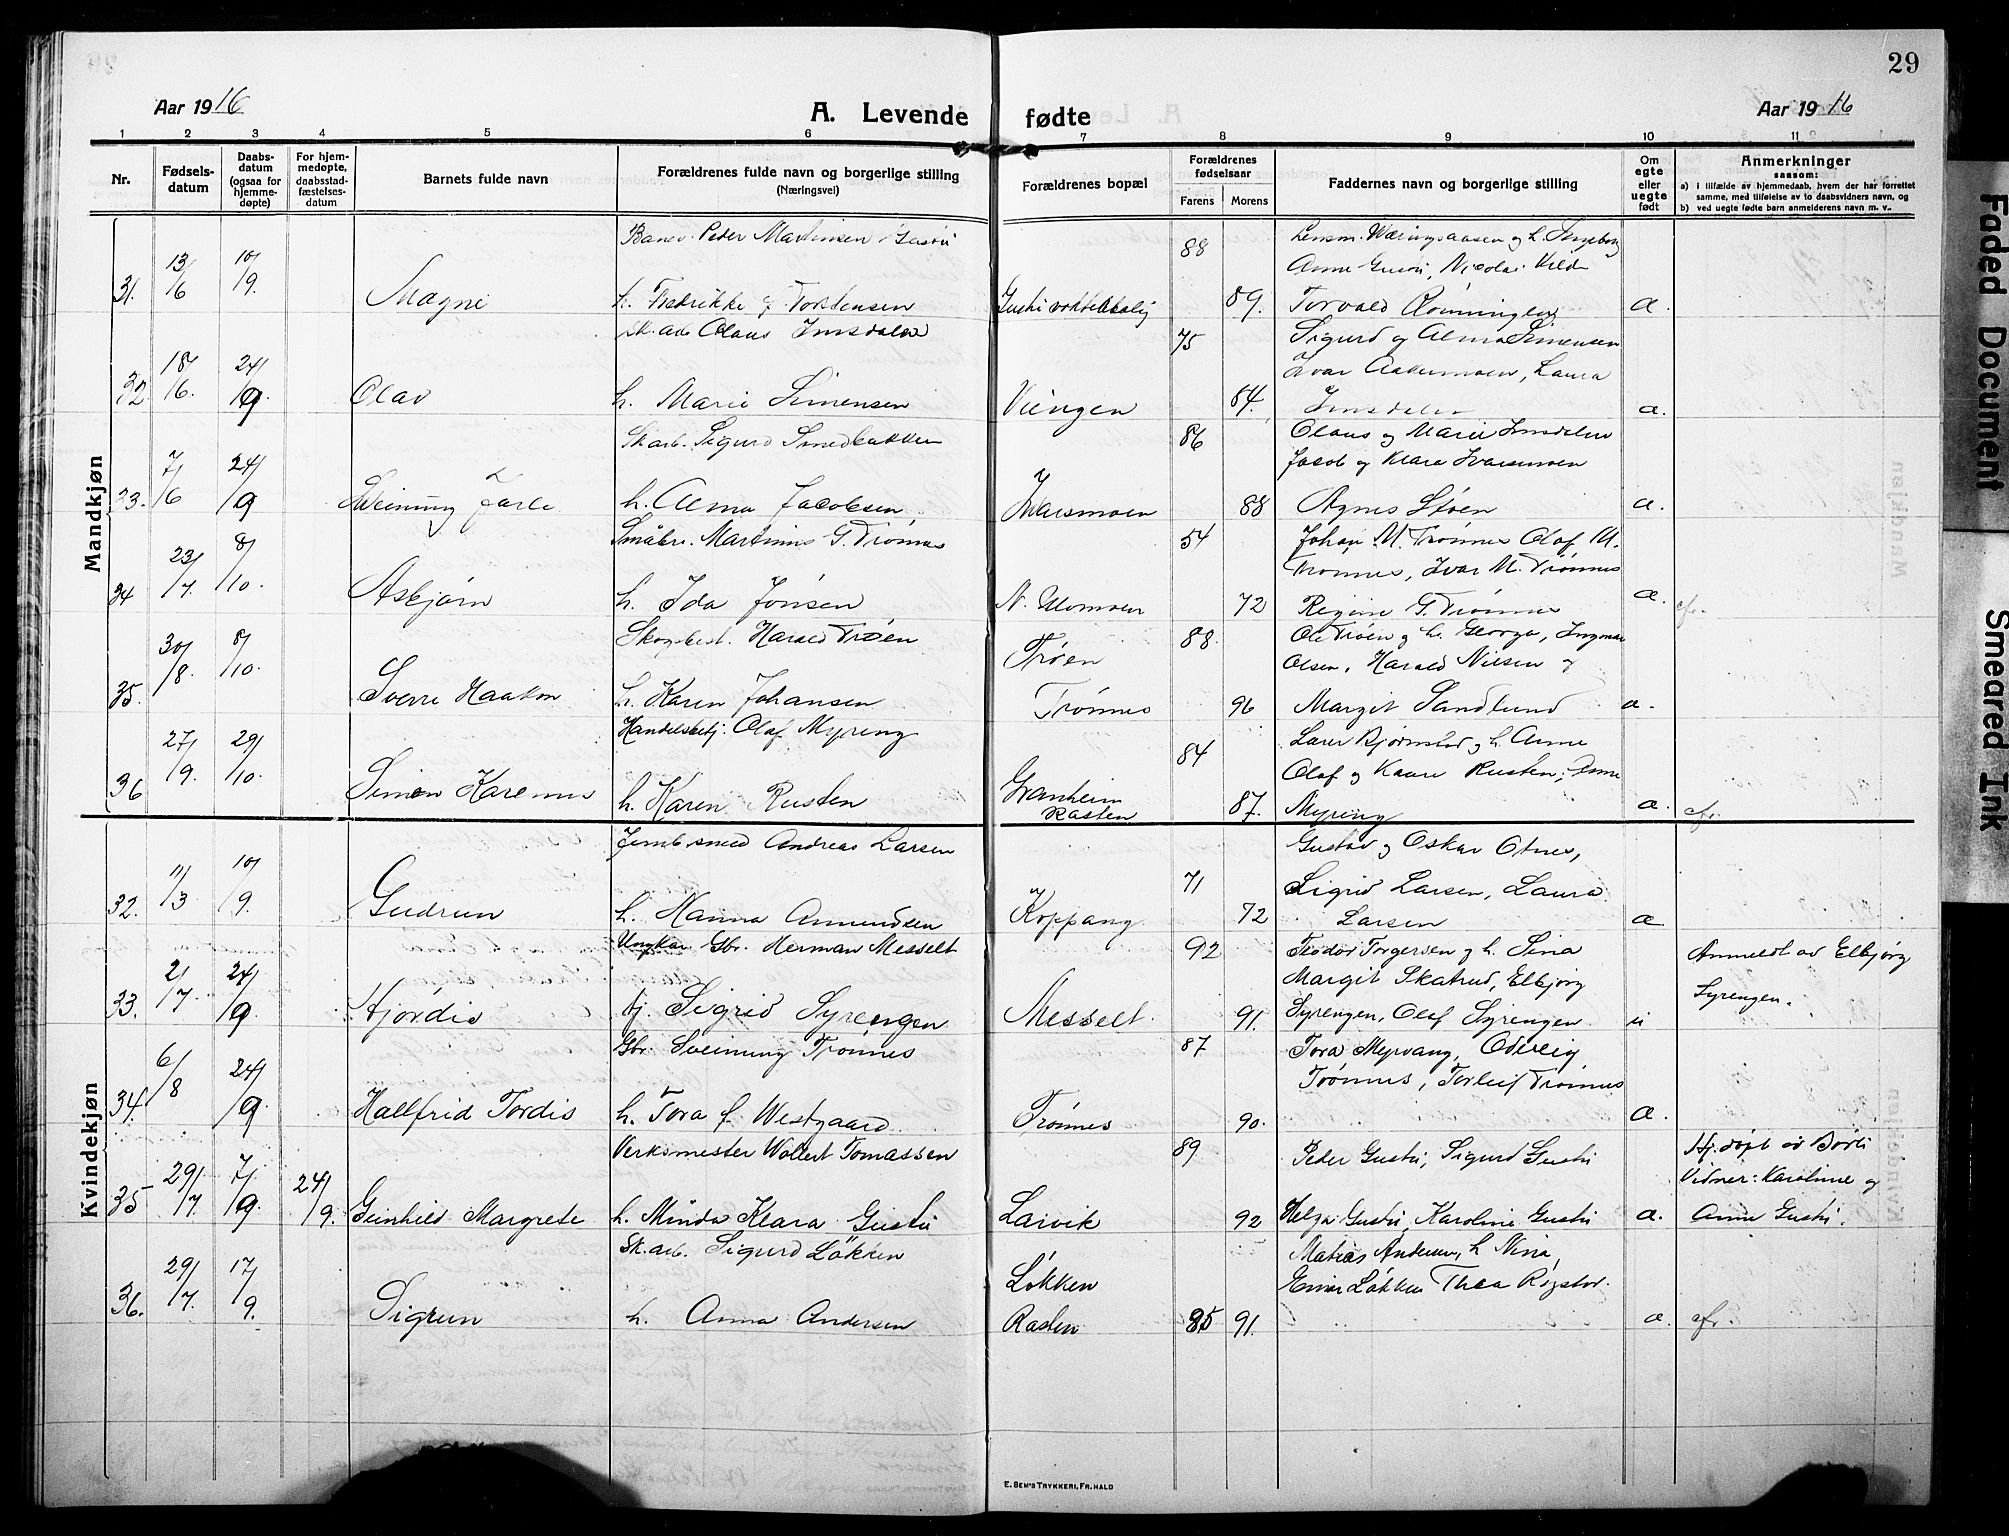 29
Aar 1916
A. Levende fødte
Aar 1916
1 2 3 4 5 6 7 8 9 10 11
Nr.
Fødsels-
datum
Daabs-
datum
(ogsaa for
hjemme-
døpte)
For hjem-
medøpte,
daabsstad-
fæstelses-
datum
Barnets fulde navn
Forældrenes fulde navn og borgerlige stilling
(Næringsvei)
Forældrenes bopæl
Forældrenes
fødselsaar
Farens Morens
Faddernes navn og borgerlige stilling
Om
egte
eller
uegte
født
Anmerkninger
saasom:
a) i tilfælde av hjemmedaab, hvem der har forrettet
samme, med tilføielse av to daabsvidners navn, og
b) ved uegte fødte barn anmelderens navn m. v..
Mandkjøn
Peder Martinsen Gustu 88
Anne Gustu, Nicolai
31. 13/6 10/9. Magne h. Fredrikke f. Torstensen 89. Torvald Rønningen æ.
Sk. arb. Olaus Imsdalen 75 Sigurd og Alma Simensen
Laura
32. 18/6. 24/9. Olav h. Marie Simensen Viengen 84. Imsdalen æ.
Sk arb. Sigurd Smedbakken 86 Olaus og Marie Imsdalen
Jacob og Klara Ivarsmoen
33. 7/6 24/9 Sveinung Jarle h. Alma Jacobsen, Ivarsmoen 88 Agnes Støen æ.
Småbr. Martinus G. Trønnes 54 Johan M. Trønnes Olaf M.
Trønnes, Ivar M. Trønnes
34 23/7. 8/10. Asbjørn h. Ida Jonsen 72 Regine G. Trønnes æ.
Skogbest. Harald Trøen 88. Ole Trøen og h. Georga, Ingvar
Trøen Olsen, Harald Nielsen og
35. 30/8. 8/10. Sverre Haakon h. Karen Johansen Trønnes 96 Margit Sandlund æ.
Handelsbetj. Olaf Myreng 84 og h. Anne
Olaf og Kaare Rusten,
36 27/9. 29/10. Simen h. Karen Rusten Granheim
Rasten 87. Myreng æ.
Kvindekjøn
Andreas Larsen 71 Gustav og Oskar Otnes,
Sigrid Larsen, Laura
32. 11/3 10/9. Gudrun h. Hanna Amundsen Koppang 72 Larsen æ
Ungkar Gbr. Herman Messelt 92 Teodor Torgersen og h. Sina Anmeldt av Elbjørg
Margit Skatrud, Elbjørg Syrengen.
33. 2/7. 24/9 Hjørdis Sigrid Syrengen Messelt. 91. Syrengen, Olaf Syrengen. u
Gbr. Sveinung Trønnes 87 Tora Myrvang, Odveig
Trønnes, Torleif Trønnes
34. 6/8 24/9 Hallfrid Tordis h. Tora f. Westgaard. Trønnes 90. æ.
Verksmester Wollert Tomassen 89 Peder Gustu, Sigurd Gustu Hj. døpt av
Vidner: Karoline og
35 29/7. 7/9. 24/9. Gunhild Margrete h. Minda Klara Gustu Larvik 92 Helga Gustu, Karoline Gustu æ. Anne Gustu.
Sk. arb. Sigurd Løkken Matias Andersen, h. Nina,
Løkken Løkken Thea
36. 29/7. 17/9. Sigrun h. Anna Andersen Rasten 85 91. æ.
E. SEM'S TRYKKERI, FR.HALD
Faded Document
Smeared Ink